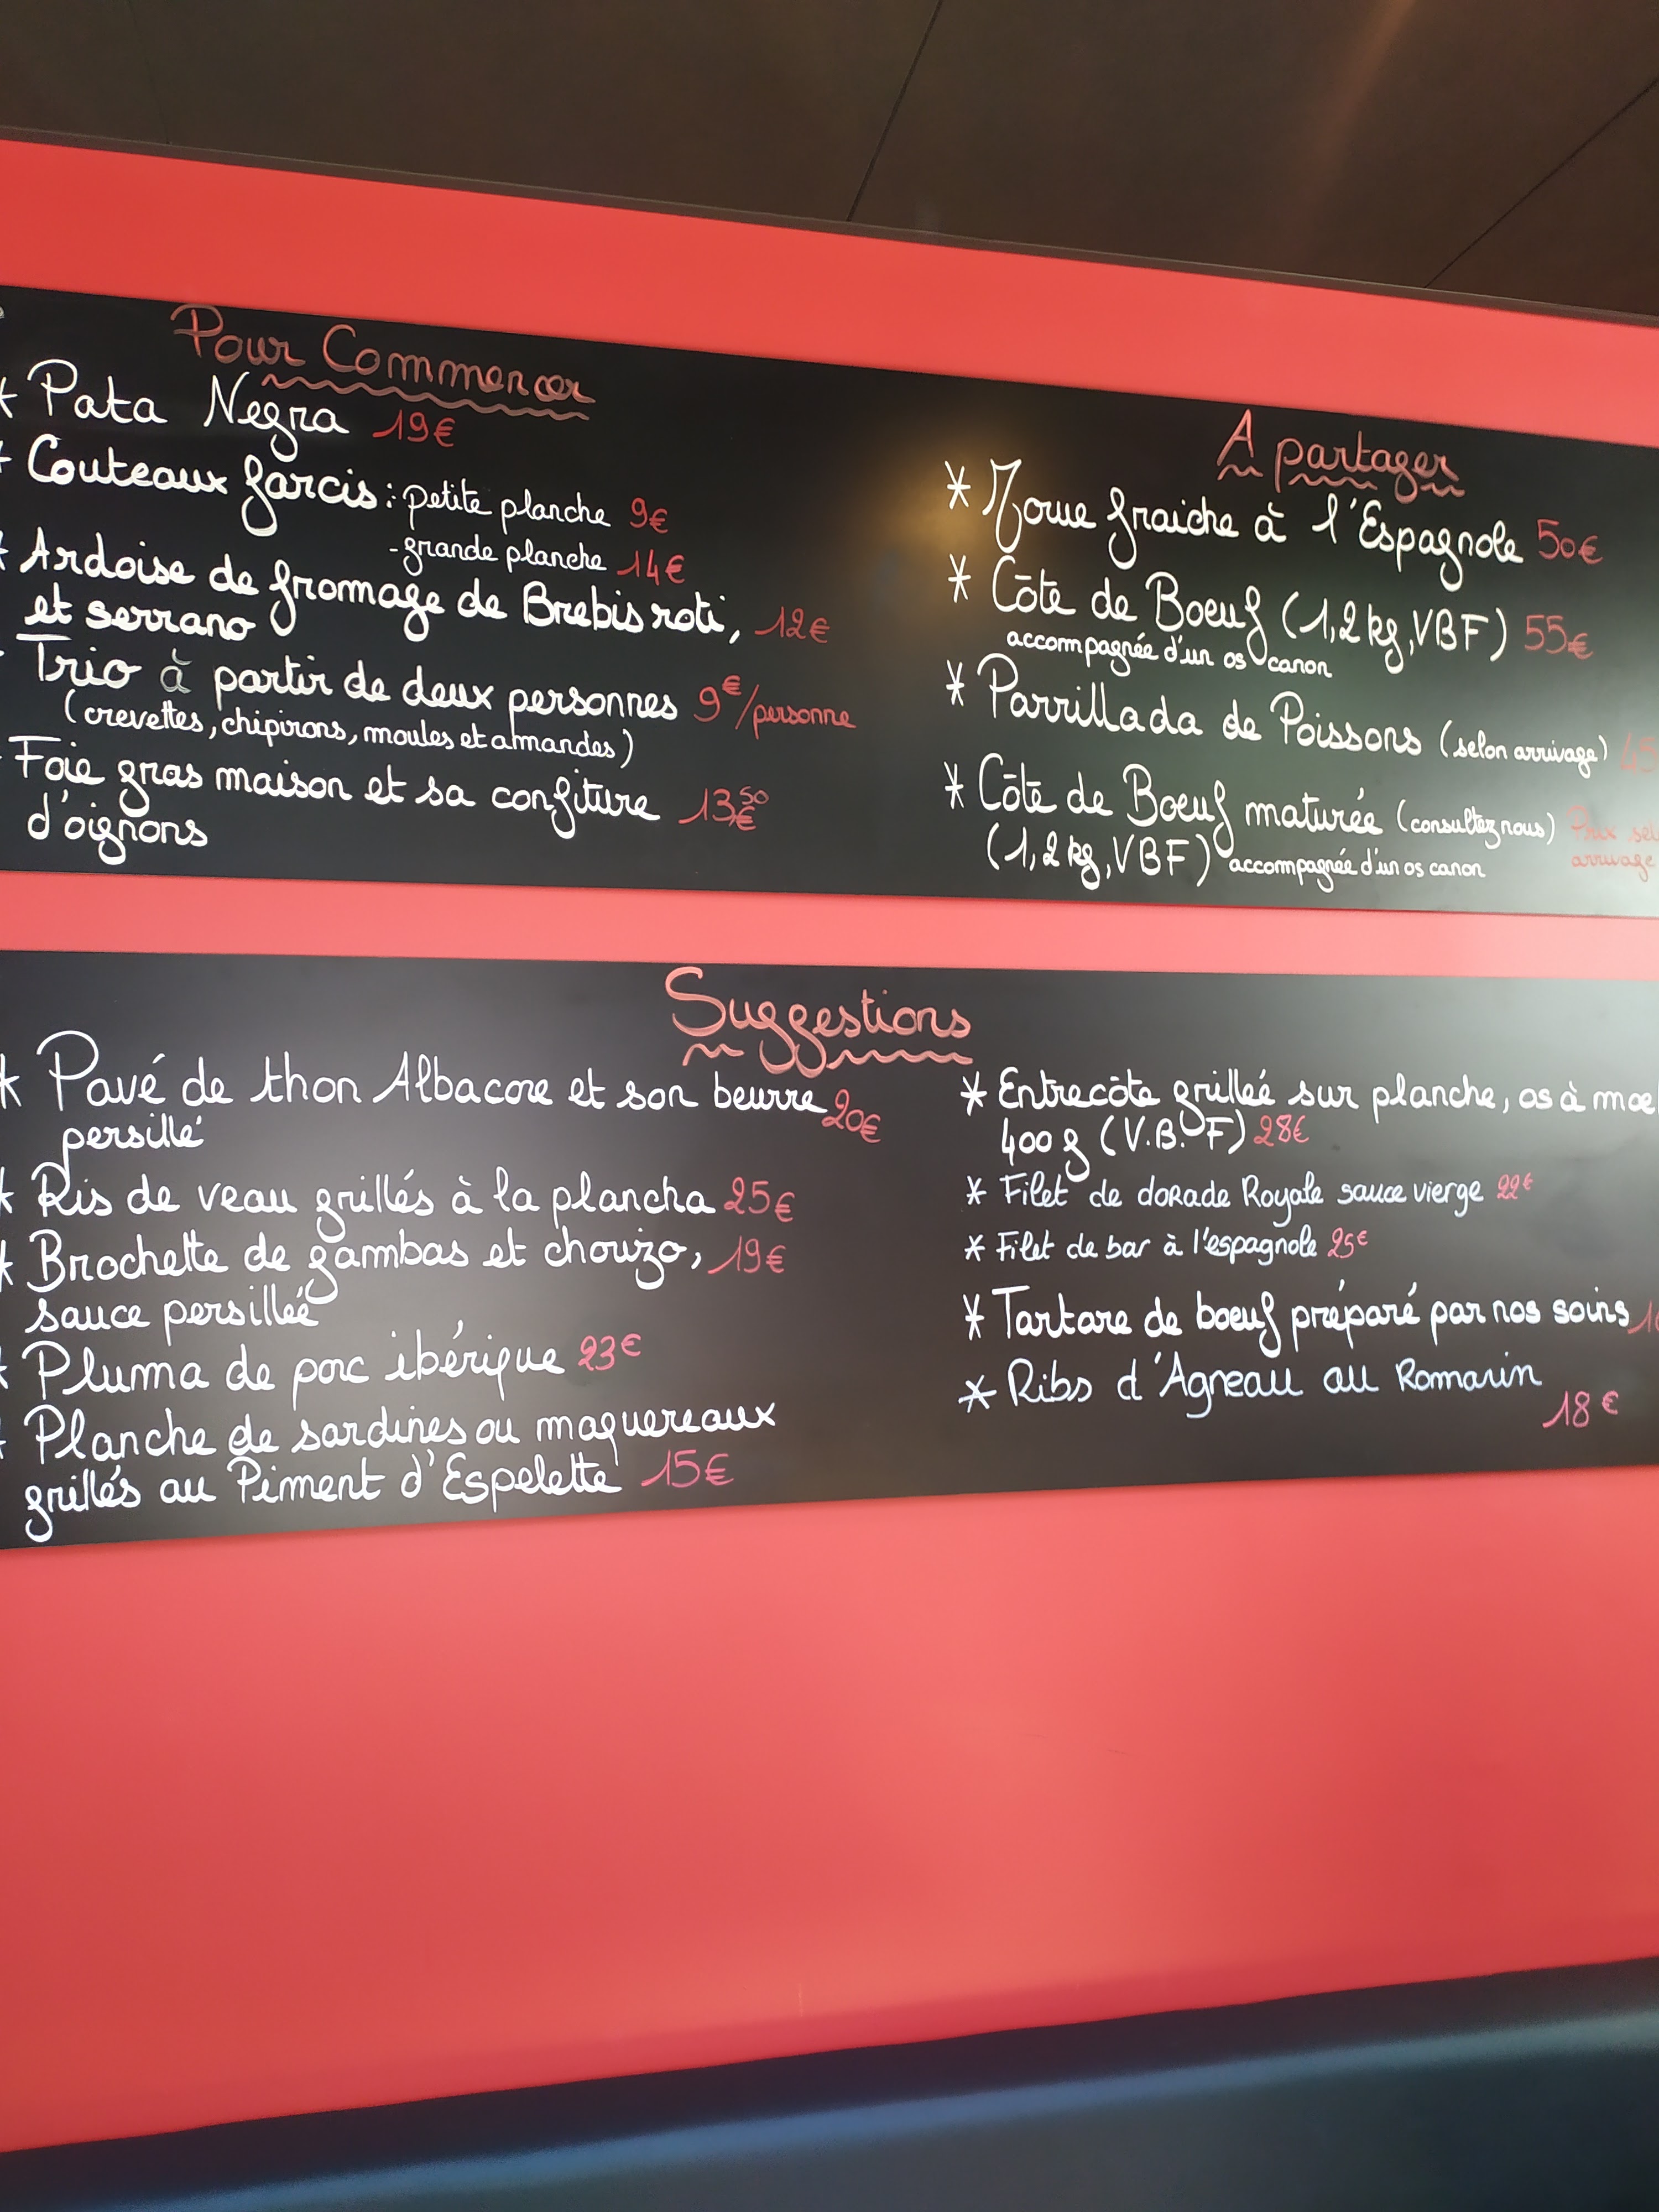 Pour Commencer
* Pata Negra 19€
* Couteaux farcis : petite planche 9€
- grande planche 14€
* Ardoise de fromage de Brebis roti, 12€
et serrano
Trio à partir de deux personnes 9€/personne
(crevettes, chipirons, moules et amandes)
Foie gras maison et sa confiture 13,50€
d'oignons
A partager
* Morue fraiche à l'Espagnole 50€
* Côte de Boeuf (1,2 kg, VBF) 55€
accompagnée d'un os canon
* Parrillada de Poissons (selon arrivage) 45
* Côte de Boeuf maturée (consultez nous) Prix sel
(1,2 kg, VBF) accompagnée d'un os canon arrivage
Suggestions
* Pavé de thon Albacore et son beurre 20€
persillé
* Ris de veau grillés à la plancha 25€
* Brochette de gambas et chorizo, 19€
sauce persilleé
* Pluma de porc ibérique 23€
* Planche de sardines ou maquereaux
grillés au Piment d'Espelette 15€
* Entrecôte grilleé sur planche, os à moe
400 g (V.B.F) 28€
* Filet de dorade Royale sauce vierge 22€
* Filet de bar à l'espagnole 25€
* Tartare de boeuf préparé par nos soins
* Ribs d'Agneau au Romarin
18€